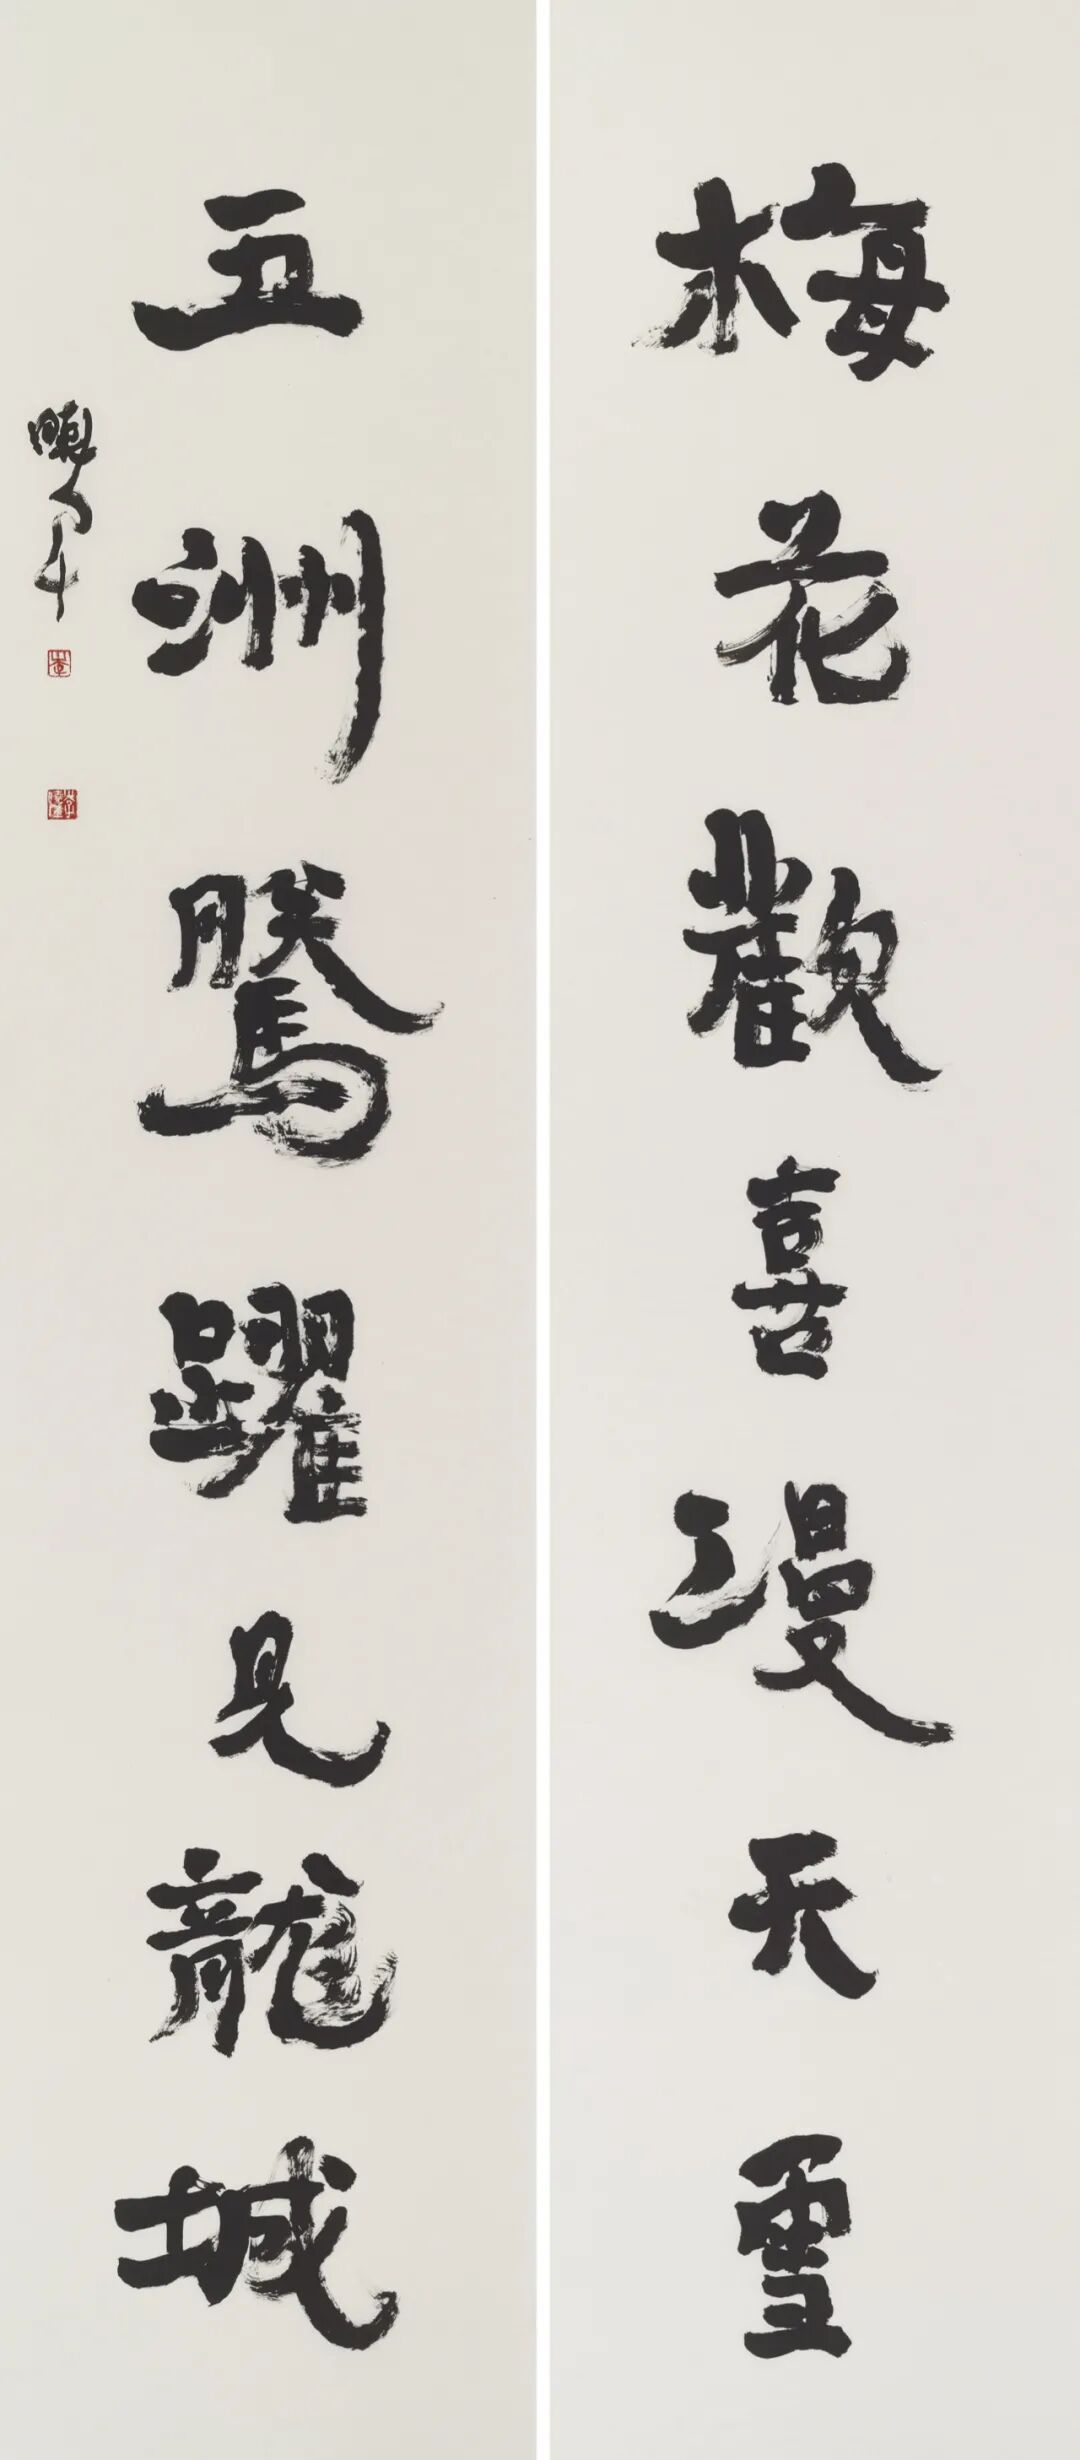 梅花歡喜漫天雪
五洲騰躍見龍城
曉軍